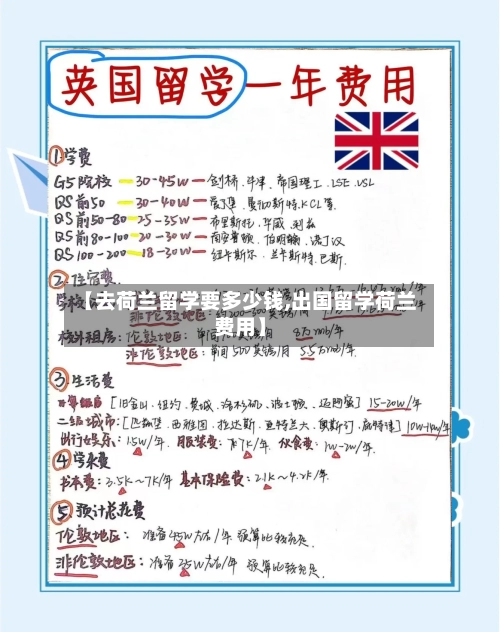 英国留学一年费用
①学费
G5院校 — 30-45W — 剑桥、牛津、帝国理工、LSE、USL
QS前50 — 30-40W — 爱丁堡、曼彻斯特、KCL等
QS前50-80 — 25-35W — 布里斯托、华威、利兹
QS前80-100 — 20-30W — 南安普顿、伯明翰、诺丁汉
QS100-200 — 18-30W — 纽卡斯尔、兰卡斯特、巴斯.
2.住宿费
【去荷兰留学要多少钱,出国留学荷兰
费用】
校外租房：伦敦地区： 8万rmb/年
非伦敦地区：每周500英镑/月 5.5万rmb/年.
③.生活费
[旧金山、纽约、费城、洛杉矶、波士顿、迈阿密] 15-20w/年
二级城市：[匹兹堡、西雅图、拉达斯、亚特兰大、奥斯汀、底特律] 10W-14w/年
出行娱乐：1.5W/年. 服装费：千7K/年. 伙食费：1w-2w/年.
④学杂费
书本费：3.5K~7K/年 基本保险费：2.1K~4.2K/年.
⑤.预计总花费
伦敦地区： 准备45W左右/年 预算比较充足.
非伦敦地区：准备35W左右/年 预算比较充足.